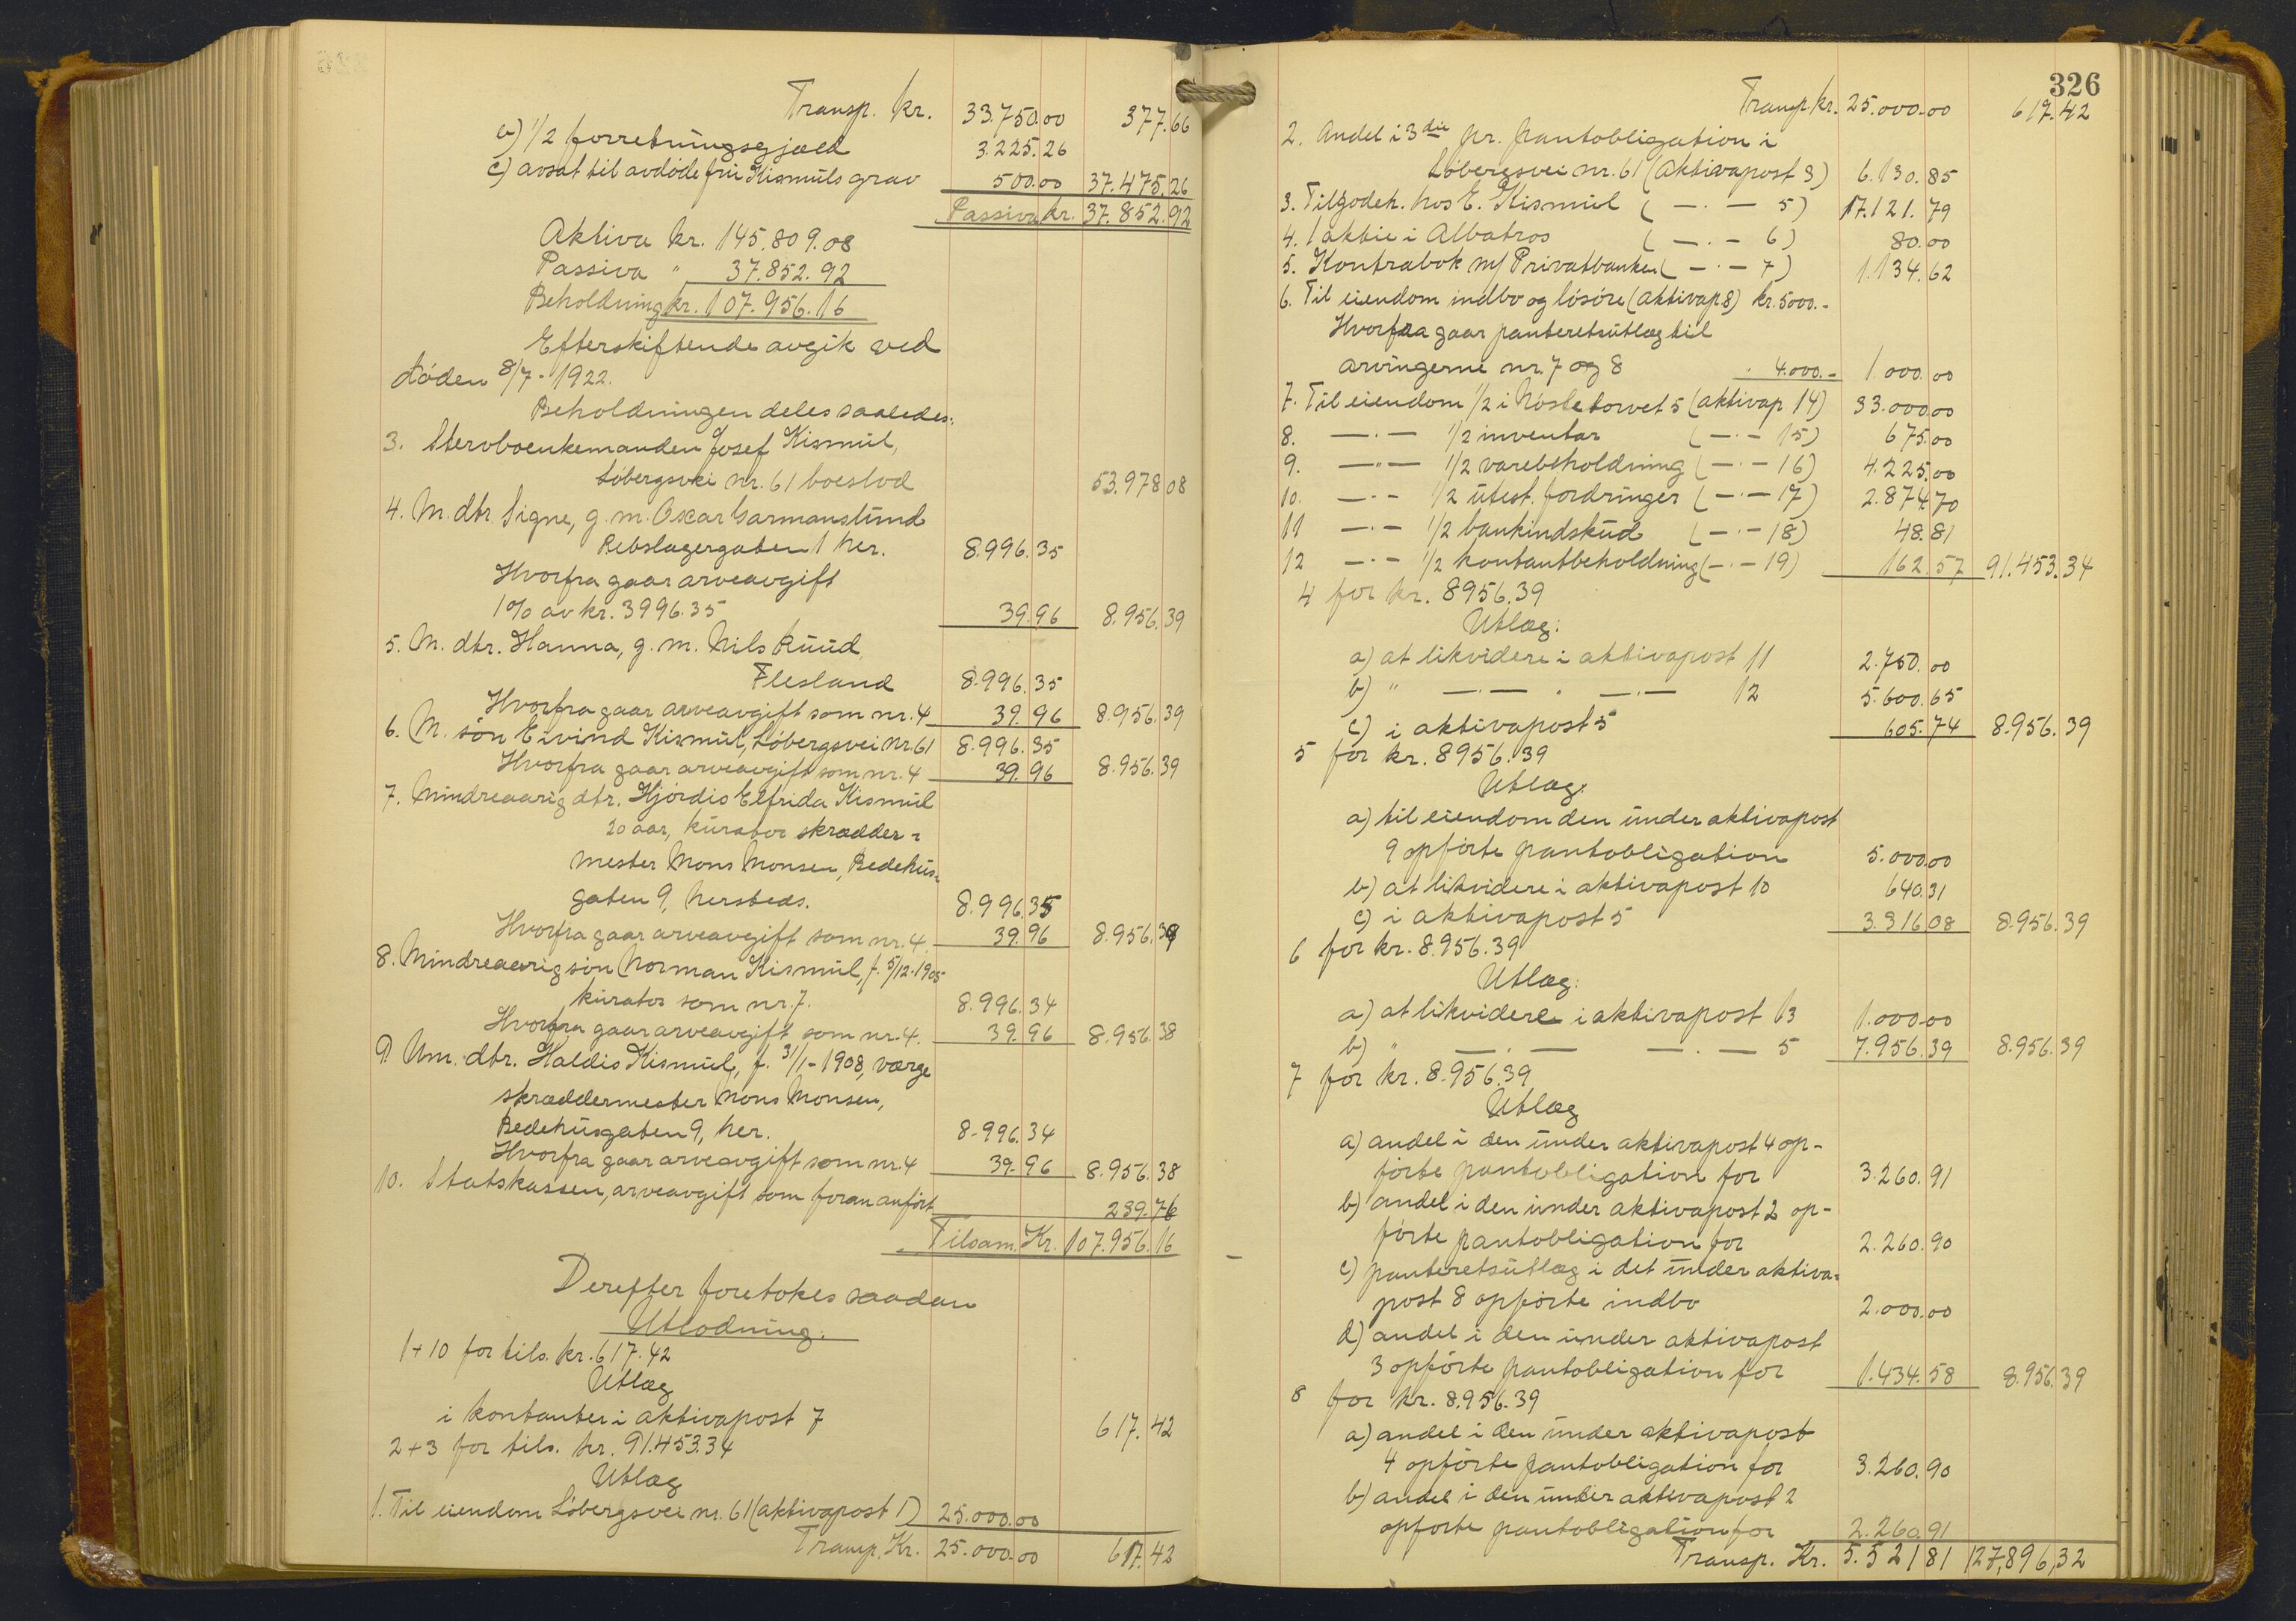 Transp. kr. 33.750.00 377.66
b) 1/2 forretningsgjæld 3.225.26
c) avsat til avdøde fru Kismuls grav 500.00 37.475.26
Passiva kr. 37.852.92
Aktiva kr. 145.809.08
Passiva " 37.852.92
Beholdning kr. 107.956.16
Efterskiftende avgik ved
døden 8/7-1922.
Beholdningen deles saaledes:
3. Stervboenkemanden Josef Kismul,
Løbergsvei nr. 61 boeslod 53.978 08
4. M. dtr. Signe, g. m. Oscar Garmanslund
Rebslagergaten 1 her. 8.996.35
Hvorfra gaar arveavgift
1% av kr. 3996.35 39.96 8.956.39
5. M. dtr. Hanna, g. m. Nils Ruud,
Flesland 8.996.35
Hvorfra gaar arveavgift som nr. 4 39.96 8.956.39
6. M. søn Eivind Kismul, Løbergsvei nr. 61 8.996.35
Hvorfra gaar arveavgift som nr. 4 39.96 8.956.39
7. Mindreaarig dtr. Hjørdis Elfrida Kismul
20 aar, kurator skrædder-
mester Mons Monsen, Bedehus-
gaten 9, hersteds. 8.996.35
Hvorfra gaar arveavgift som nr. 4. 39.96 8.956.39
8. Mindreaarig søn Norman Kismul, f. 5/12-1905
kurator som nr. 7. 8.996.34
Hvorfra gaar arveavgift som nr. 4. 39.96 8.956.38
9. Um. dtr. Haldis Kismul, f. 31/1-1908, værge
skræddermester Mons Monsen,
Bedehusgaten 9, her. 8.996.34
Hvorfra gaar arveavgift som nr. 4 39.96 8.956.38
10. Statskassen, arveavgift som foran anført 239.76
Tilsam. Kr. 107.956.16
Derefter foretokes saadan
Utlodning.
1+10 for tils. kr. 617.42
Utlæg
i kontanter i aktivapost 7 617.42
2+3 for tils. kr. 91.453.34
Utlæg
1. Til eiendom Løbergsvei nr. 61 (aktivapost 1) 25.000.00
Transp. Kr. 25.000.00 617.42
326
Transp. kr. 25.000.00 617.42
2. Andel i 3die pr. pantobligation i
Løbergsvei nr. 61 (aktivapost 3) 6.130.85
3. Tilgodeh. hos E. Kismul ( —.— 5) 17.121.79
4. 1 aktie i Albatros ( —.— 6) 80.00
5. Kontrabok m/ Privatbanken ( —.— 7) 1.134.62
6. Til eiendom indbo og løsøre (aktivap 8) kr. 5000.-
Hvorfra gaar panteretsutlæg til
arvingerne nr. 7 og 8 " 4.000.- 1.000.00
7. Til eiendom 1/2 i Nøstetorvet 5 (aktivap 14) 33.000.00
8. —.— 1/2 inventar (—.— 15) 675.00
9. —"— 1/2 varebeholdning (—.— 16) 4.225.00
10. —.— 1/2 utest. fordringer (—.— 17) 2.874.70
11 —.— 1/2 bankindskud (—.— 18) 48.81
12 —.— 1/2 kontantbeholdning (—.— 19) 162.57 91.453.34
4 for kr. 8956.39
Utlæg:
a) at likvidere i aktivapost 11 2.750.00
b) " —.— " —.— 12 5.600.65
c) i aktivapost 5 605.74 8.956.39
5 for kr. 8956.39
Utlæg:
a) til eiendom den under aktivapost
9 opførte pantobligation 5.000.00
b) at likvidere i aktivapost 10 640.31
c) i aktivapost 5 3.316.08 8.956.39
6 for kr. 8.956.39
Utlæg:
a) at likvidere i aktivapost 13 1.000.00
b) " —.— —.— 5 7.956.39 8.956.39
7 for kr. 8.956.39
Utlæg
a) andel i den under aktivapost 4 op-
førte pantobligation for 3.260.91
b) andel i den under aktivapost 2 op-
førte pantobligation for 2.260.90
c) panteretsutlæg i det under aktiva-
post 8 opførte indbo 2.000.00
d) andel i den under aktivapost
3 opførte pantobligation for 1.434.58 8.956.39
8 for kr. 8.956.39
a) andel i den under aktivapost
4 opførte pantobligation for 3.260.90
b) andel i den under aktivapost 2
opførte pantobligation for 2.260.91
Transp. Kr. 5.521 81 127,896,32